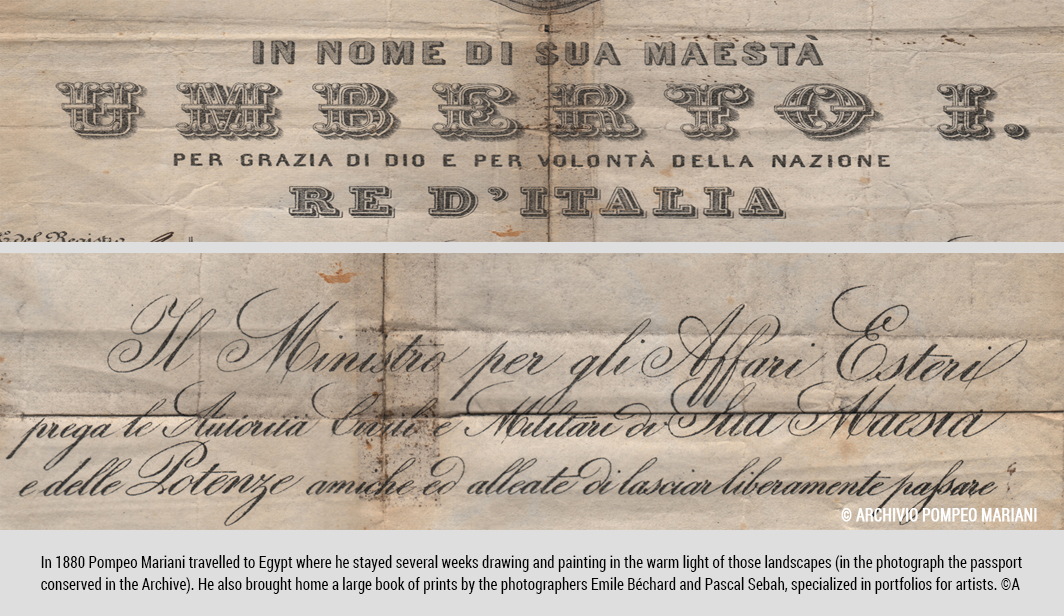 IN NOME DI SUA MAESTÀ
UMBERTO I.
PER GRAZIA DI DIO E PER VOLONTÀ DELLA NAZIONE
RE D'ITALIA
del Registro
Il Ministro per gli Affari Esteri
prega le Autorità Civili e Militari di Sua Maestà
e delle Potenze amiche ed alleate di lasciar liberamente passare
© ARCHIVIO POMPEO MARIANI
In 1880 Pompeo Mariani travelled to Egypt where he stayed several weeks drawing and painting in the warm light of those landscapes (in the photograph the passport
conserved in the Archive). He also brought home a large book of prints by the photographers Emile Béchard and Pascal Sebah, specialized in portfolios for artists. ©A